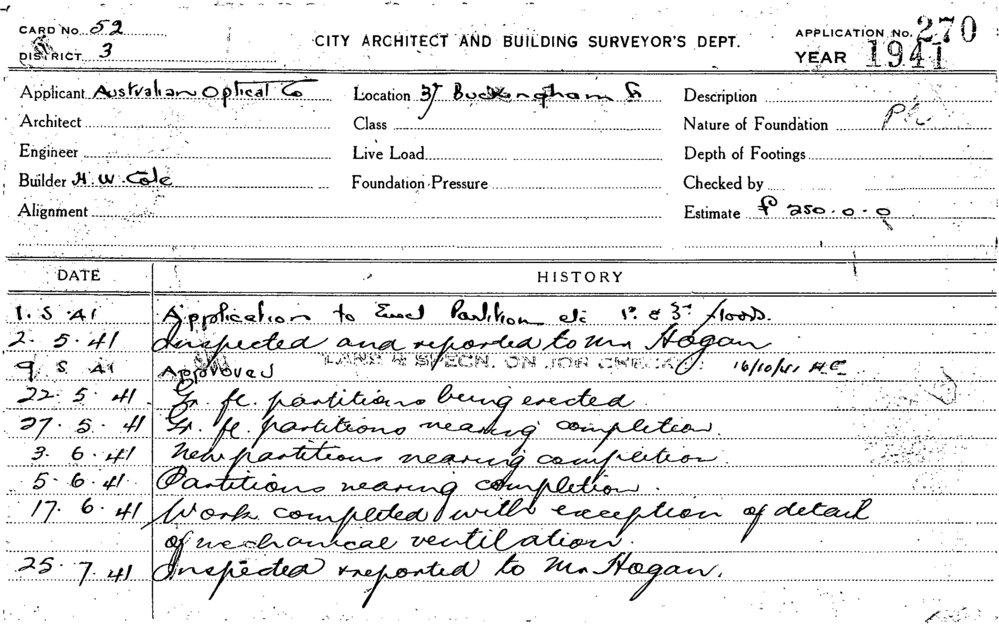 CARD NO. 52
DISTRICT 3
CITY ARCHITECT AND BUILDING SURVEYOR'S DEPT.
APPLICATION NO. 270
YEAR 1941
Applicant Australian Optical Co
Architect
Engineer
Builder H. W. Cole
Alignment
Location 37 Buckingham St
Class
Live Load
Foundation Pressure
Description
Nature of Foundation
Depth of Footings
Checked by
Estimate £ 250.0.0
DATE HISTORY
1. 5 .41 Application to Erect Partition etc 1st & 3rd floors.
2. 5. 41 Inspected and reported to Mr Hogan
SPECN. ON JOB 16/10/41
9 5 41 Approved
22. 5. 41 Gr. fl. partitions being erected
27. 5. 41 Gr. fl. partitions nearing completion.
3. 6. 41 New partitions nearing completion.
5. 6. 41 Partitions nearing completion.
17. 6. 41 Work completed with exception of detail
of mechanical ventilation.
25. 7. 41 Inspected & reported to Mr Hogan.